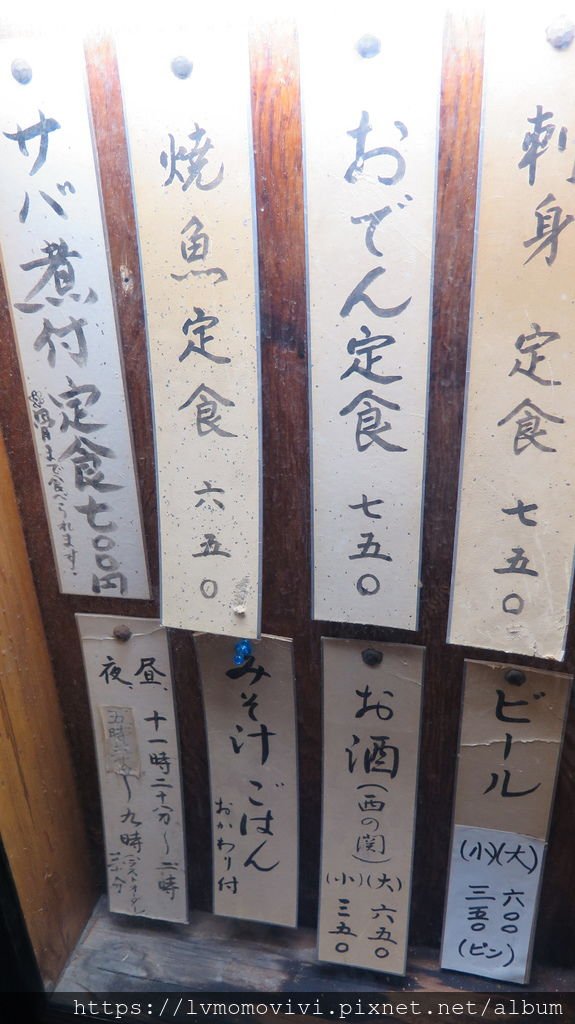 刺身 定食 七五〇
おでん定食 七五〇
焼魚定食 六五〇
サバ煮付定食七〇〇円
骨まで食べられます。
ビール
(大) 六〇〇
(小) 三五〇
(ビン)
お酒(西の関)
(大) 六五〇
(小) 三五〇
みそ汁 ごはん
おかわり付
昼、十一時二十分〜二時
夜、五時
〜九時
(ラストオーダー
https://lvmomovivi.pixnet.net/album